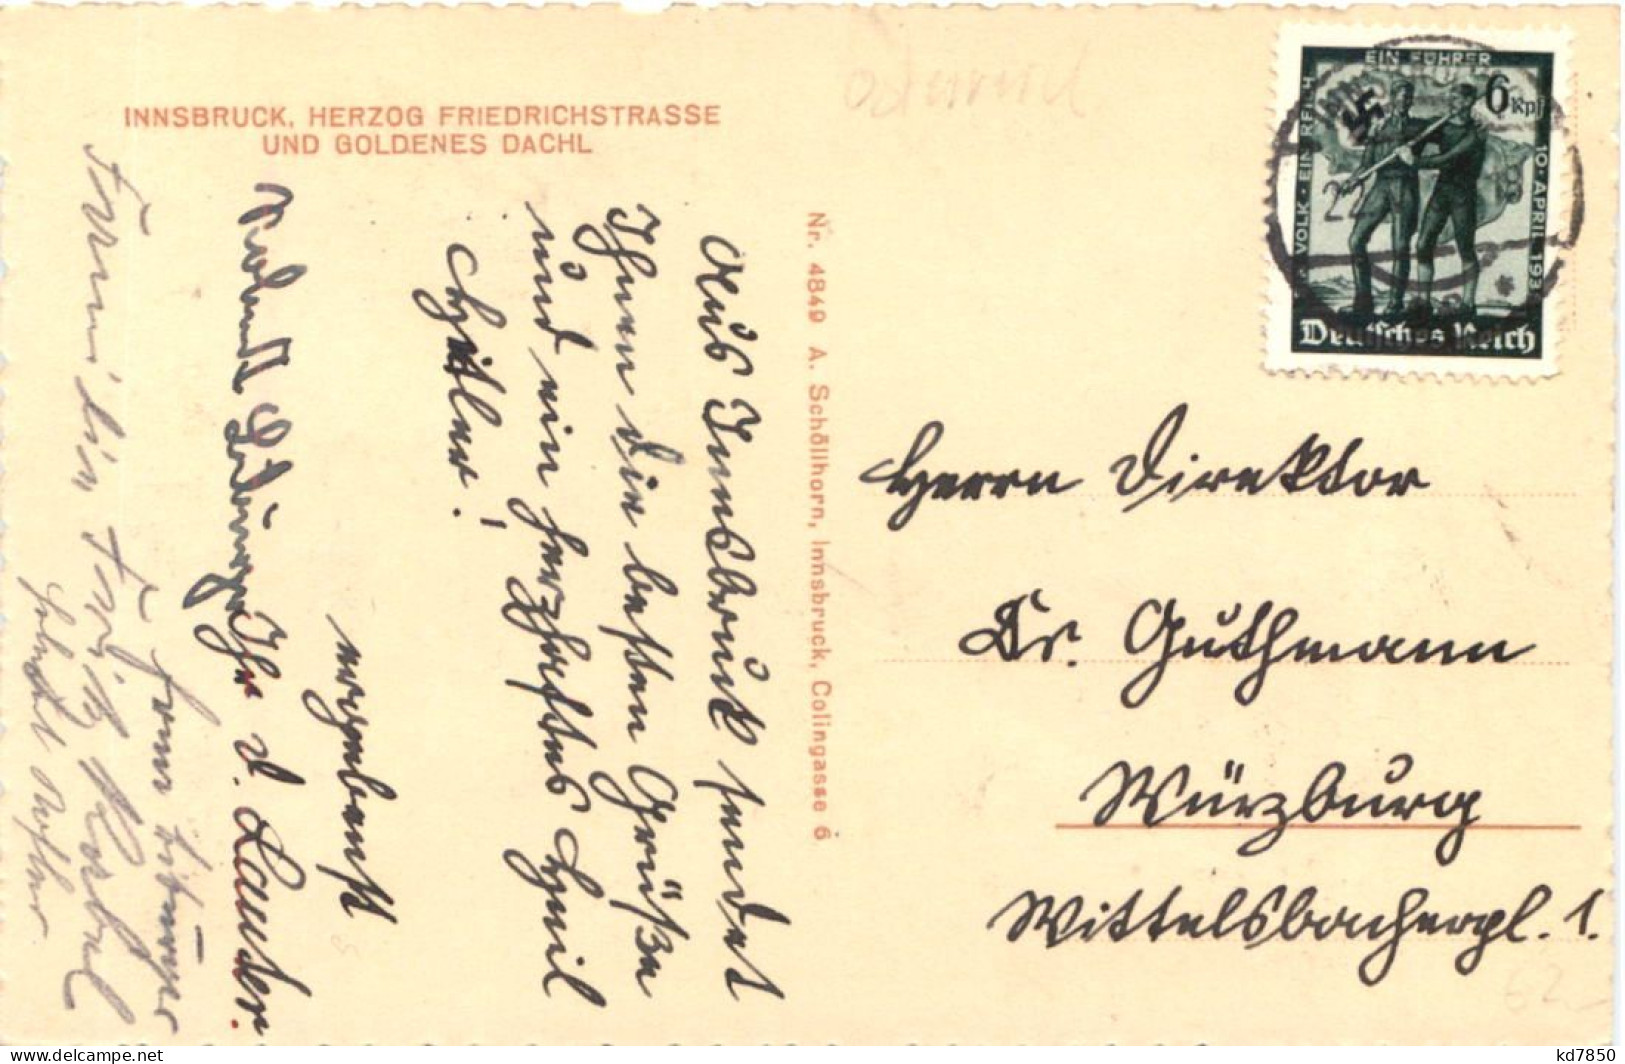 INNSBRUCK, HERZOG FRIEDRICHSTRASSE
UND GOLDENES DACHL
Aus Innsbruck sendet
Ihnen die besten Grüße
und ein herzhaftes Heil
Hitler!
ergebenst
Ihr D. Lauter.
Nr. 4849 A. Schöllhorn, Innsbruck, Colingasse 6
EIN VOLK · EIN REICH
EIN FÜHRER
10. APRIL 193
6 Rpf
Deutsches Reich
22
Herrn Direktor
Dr. Guthmann
Würzburg
Wittelsbacherpl. 1.
https://www.delcampe.net
kd7850